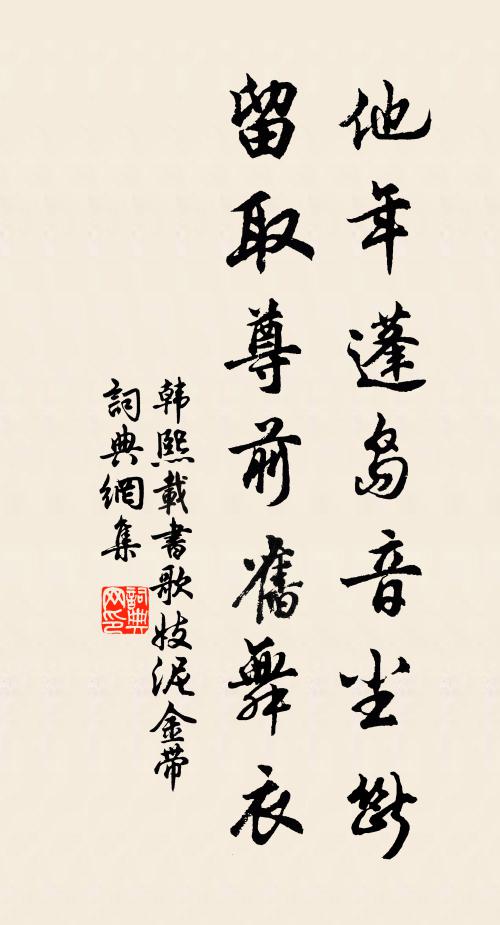 他年蓬岛音尘断
留取尊前舊舞衣
韩熙載書歌妓泥金带
詞典網集
詞典网印